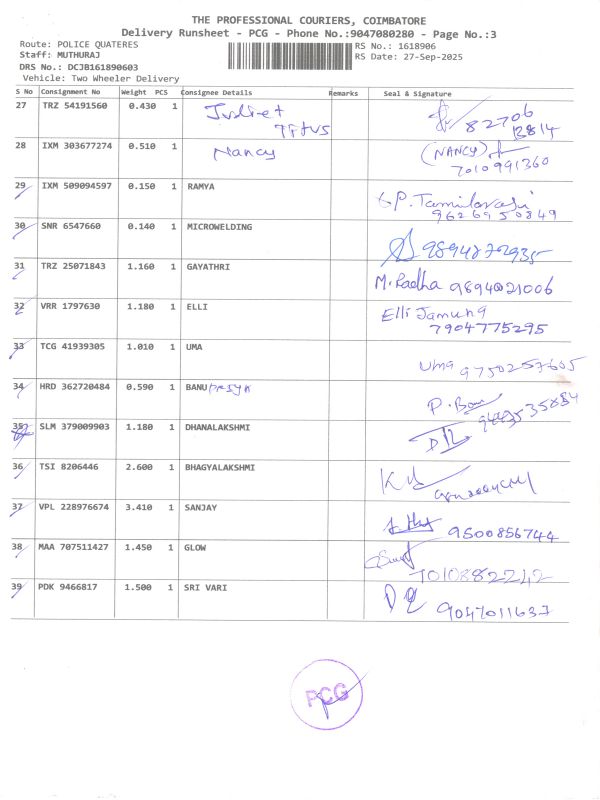 THE PROFESSIONAL COURIERS, COIMBATORE
Delivery Runsheet - PCG - Phone No.:9047080280 - Page No.:3
Route: POLICE QUATERES
RS No.: 1618906
Staff: MUTHURAJ
RS Date: 27-Sep-2025
DRS No.: DCJB161890603
Vehicle: Two Wheeler Delivery
S No Consignment No Weight PCS Consignee Details Remarks Seal & Signature
27 TRZ 54191560 0.430 1 Juliet Titus 82706 13814
28 IXM 303677274 0.510 1 Nancy (NANCY) 7010991360
29 IXM 509094597 0.150 1 RAMYA P. Tamilarasi 9626950849
30 SNR 6547660 0.140 1 MICROWELDING 9894872935
31 TRZ 25071843 1.160 1 GAYATHRI M. Radha 9894021006
32 VRR 1797630 1.180 1 ELLI Elli Jamuna 7904775295
33 TCG 41939305 1.010 1 UMA Uma 9750257605
34 HRD 362720484 0.590 1 BANU priya P. Banu
35 SLM 379009903 1.180 1 DHANALAKSHMI
36 TSI 8206446 2.600 1 BHAGYALAKSHMI
37 VPL 228976674 3.410 1 SANJAY 9500856744
38 MAA 707511427 1.450 1 GLOW 7010882242
39 PDK 9466817 1.500 1 SRI VARI 9047011637
PCG